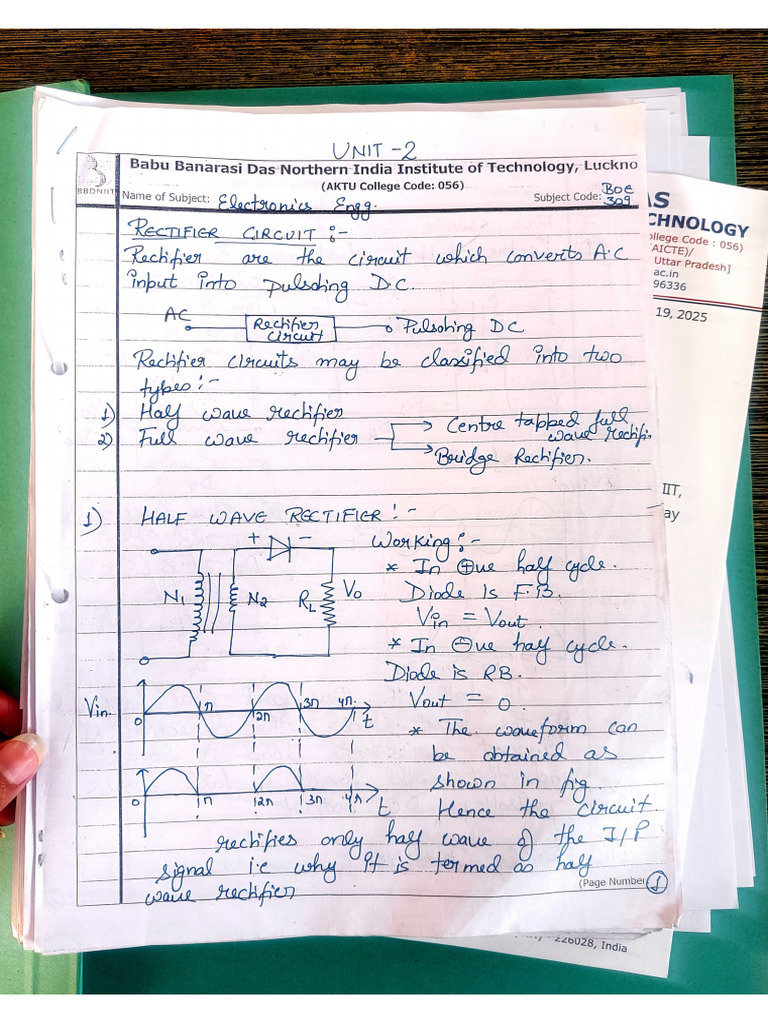 UNIT-2
Babu Banarasi Das Northern India Institute of Technology, Luckno
(AKTU College Code: 056)
BBDNIIT
Name of Subject: Electronics Engg.
Subject Code: BOE 309
RECTIFIER CIRCUIT :-
Rectifier are the circuit which converts A.C
input into pulsating D.C.
AC
Rectifier circuit
Pulsating DC
Rectifier circuits may be classified into two
types:-
1) Half wave rectifier
2) Full wave rectifier
Centre tapped full
wave rectifi
Bridge Rectifier.
1) HALF WAVE RECTIFIER :-
+ -
N1 N2 RL Vo
Working :-
* In +ve half cycle.
Diode is F.B.
Vin = Vout.
* In -ve half cycle.
Diode is RB.
Vout = 0.
Vin
0 π 2π 3π 4π t
0 π 2π 3π 4π t
* The waveform can
be obtained as
shown in fig.
Hence the circuit
rectifies only half wave of the I/P
signal i.e why it is termed as half
wave rectifier
(Page Number 1
AS
CHNOLOGY
ollege Code : 056)
AICTE)/
Uttar Pradesh]
ac.in
96336
19, 2025
IIT,
ay
226028, India